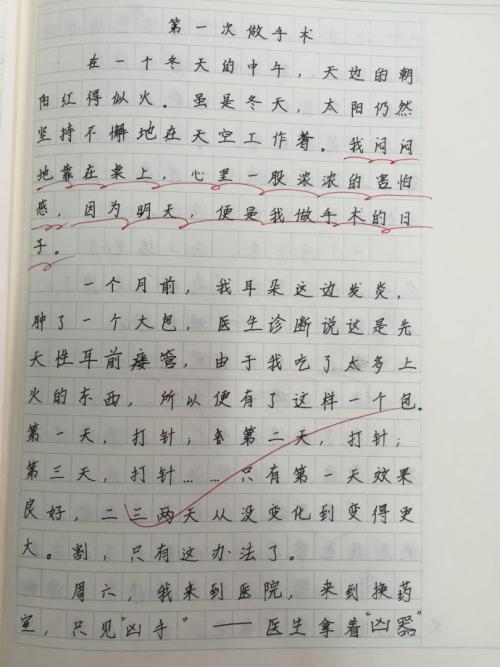 第一次做手术
在一个冬天的中午，天边的朝
阳红得似火。虽是冬天，太阳仍然
坚持不懈地在天空工作着。我闷闷
地靠在桌上，心里一股浓浓的害怕
感，因为明天，便是我做手术的日
子。
一个月前，我耳朵这边发炎，
肿了一个大包，医生诊断说这是先
天性耳前瘘管，由于我吃了太多上
火的东西，所以便有了这样一个包。
第一天，打针；第二天，打针；
第三天，打针……只有第一天效果
良好，二三两天从没变化到变得更
大。割，只有这办法了。
周六，我来到医院，来到换药
室，只见“凶手”——医生拿着“凶器”